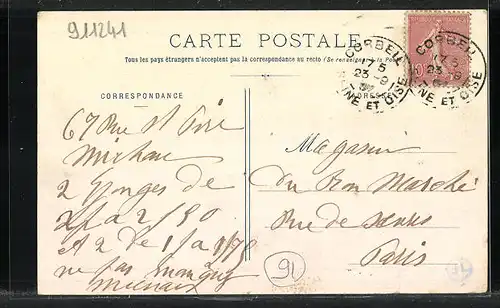 911241
CARTE POSTALE
Tous les pays étrangers n'acceptent pas la correspondance au recto (Se renseigner à la Poste)
CORRESPONDANCE
ADRESSE
CORBEIL
23 -9
SEINE ET OISE
CORBEIL
23 -9
SEINE ET OISE
67 Rue St
2 de
2f a 2/90
et 2 de 1f a 1/70
ne pas manquer
Magasin
du Bon Marché
Rue de Sèvres
Paris
91